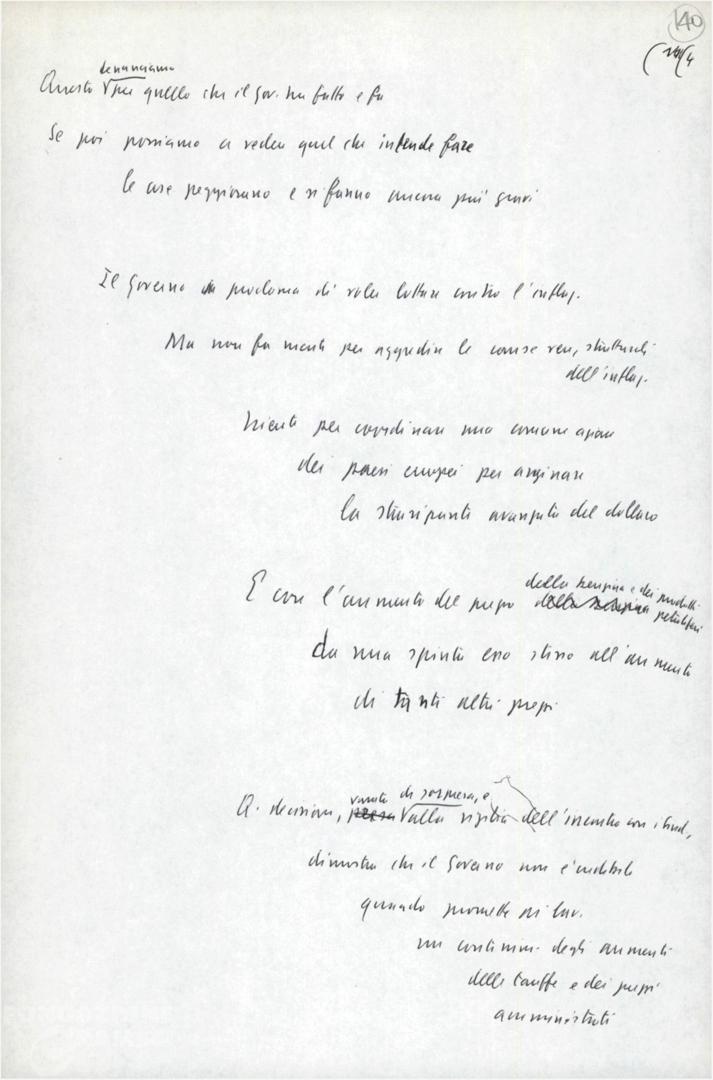 140
denunciamo
Questo per quello che il Gov. ha fatto e fa
Se poi passiamo a veder quel che intende fare
le cose peggiorano e si fanno ancora più gravi
Il Governo proclama di voler lottare contro l'inflaz.
Ma non fa niente per aggredire le cause vere, strutturali
dell'inflaz.
Niente per coordinare una comune azione
dei paesi europei per arginare
la straripante avanzata del dollaro
della benzina e dei prodotti
E con l'aumento del prezzo della benzina petroliferi
dà una spinta esso stesso all'aumento
di tanti altri prezzi
venuta di sorpresa, e
Q. decisione, presa alla vigilia dell'incontro con i sind.,
dimostra che il Governo non è credibile
quando promette ai lav.
un contenim. degli aumenti
delle tariffe e dei prezzi
amministrati